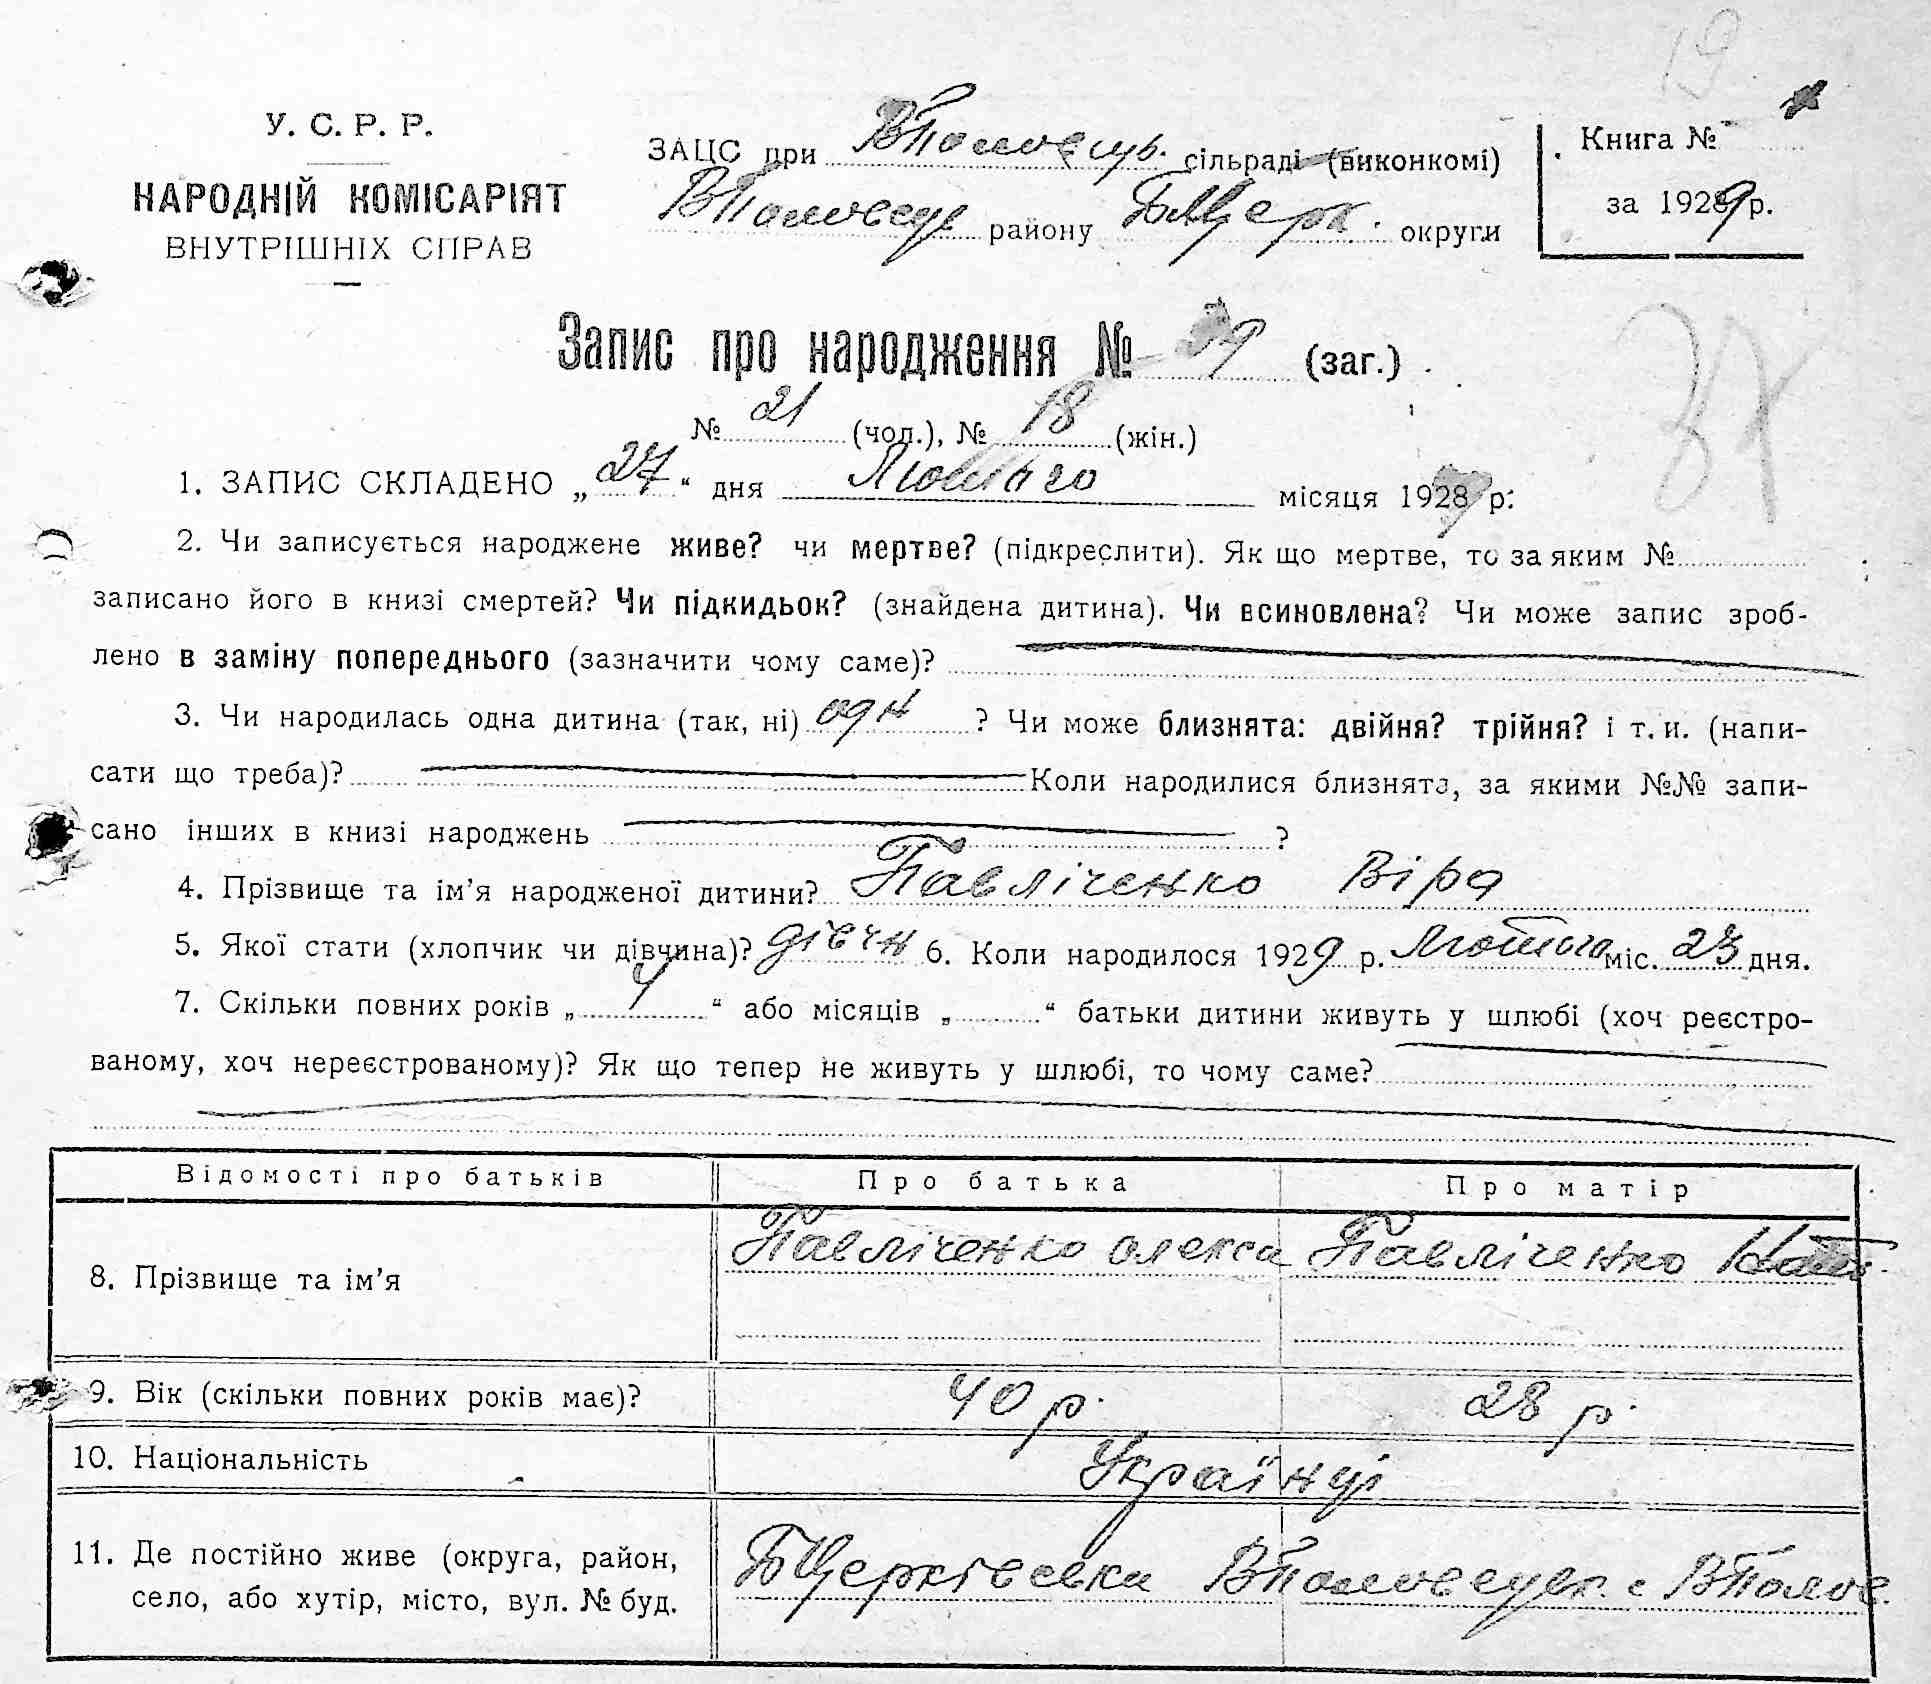 19
У. С. Р. Р.
НАРОДНІЙ КОМІСАРІЯТ
ВНУТРІШНІХ СПРАВ
ЗАЦС при ВПоловец. сільраді (виконкомі)
ВПоловец району БЦерк. округи
Книга №
за 1929 р.
Запис про народження № 39 (заг.)
№ 21 (чол.), № 18 (жін.)
1. ЗАПИС СКЛАДЕНО „27“ дня Лютого місяця 1929 р.
2. Чи записується народжене живе? чи мертве? (підкреслити). Як що мертве, то за яким №
записано його в книзі смертей? Чи підкидьок? (знайдена дитина). Чи всиновлена? Чи може запис зроб-
лено в заміну попереднього (зазначити чому саме)?
3. Чи народилась одна дитина (так, ні) одн ? Чи може близнята: двійня? трійня? і т. и. (напи-
сати що треба)? Коли народилися близнята, за якими №№ запи-
сано інших в книзі народжень ?
4. Прізвище та ім'я народженої дитини? Павліченко Віра
5. Якої стати (хлопчик чи дівчина)? дівчн 6. Коли народилося 1929 р. Лютого міс. 23 дня.
7. Скільки повних років „ 4 “ або місяців „ “ батьки дитини живуть у шлюбі (хоч реєстро-
ваному, хоч нереєстрованому)? Як що тепер не живуть у шлюбі, то чому саме?
Відомості про батьків Про батька Про матір
8. Прізвище та ім'я Павліченко олекса Павліченко
9. Вік (скільки повних років має)? 40 р. 28 р.
10. Національність Українці
11. Де постійно живе (округа, район, БЦерківськи ВПоловецьк. с ВПолов.
село, або хутір, місто, вул. № буд.